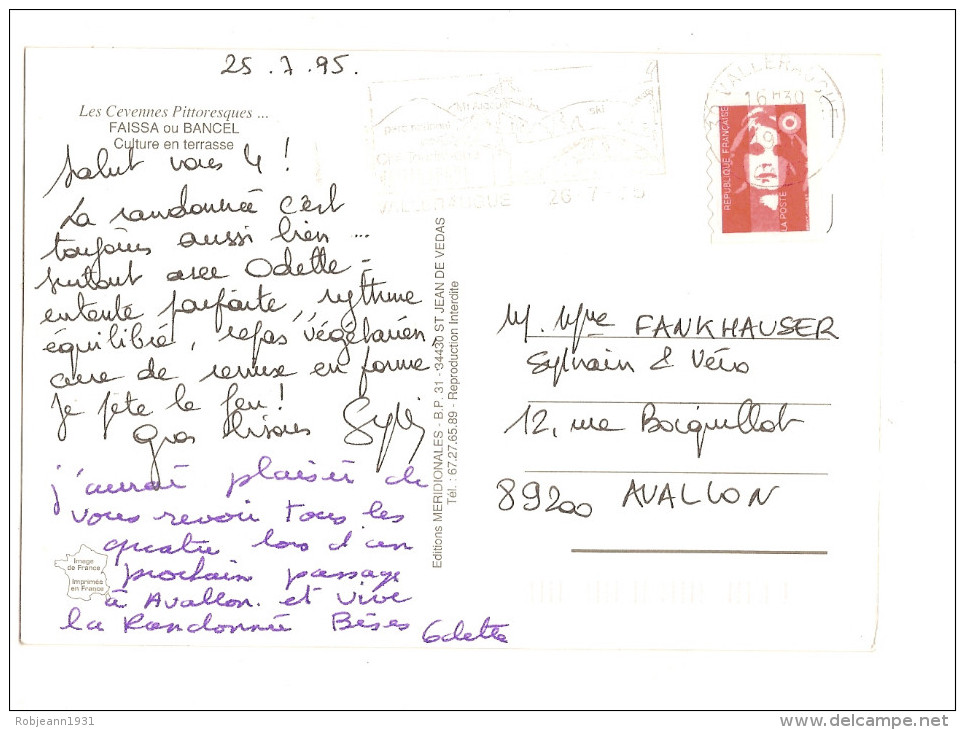 25.7.95.
Les Cevennes Pittoresques ...
FAISSA ou BANCEL
Culture en terrasse
Salut vous 4 !
La randonnée c'est
toujours aussi bien ...
surtout avec Odette -
entente parfaite, rythme
équilibré, repas végétarien,
cure de remise en forme
Je pète le feu !
Gros bisous Sylvi
j'aurai plaisir de
vous revoir tous les
quatre lors d'un
prochain passage
à Avallon. et vive
la Randonnée Bises Odette
Image
de France
Imprimée
en France
Editions MERIDIONALES - B.P. 31 - 34430 ST JEAN DE VEDAS
Tél. : 67.27.65.89 - Reproduction Interdite
VALLERAUGUE
16H30
VALLERAUGUE 26 7 95
REPUBLIQUE FRANÇAISE
LA POSTE
M. Mme FANKHAUSER
Sylvain & Véro
12, rue Bocquillot
89200 AVALLON
Robjeann1931
www.delcampe.net